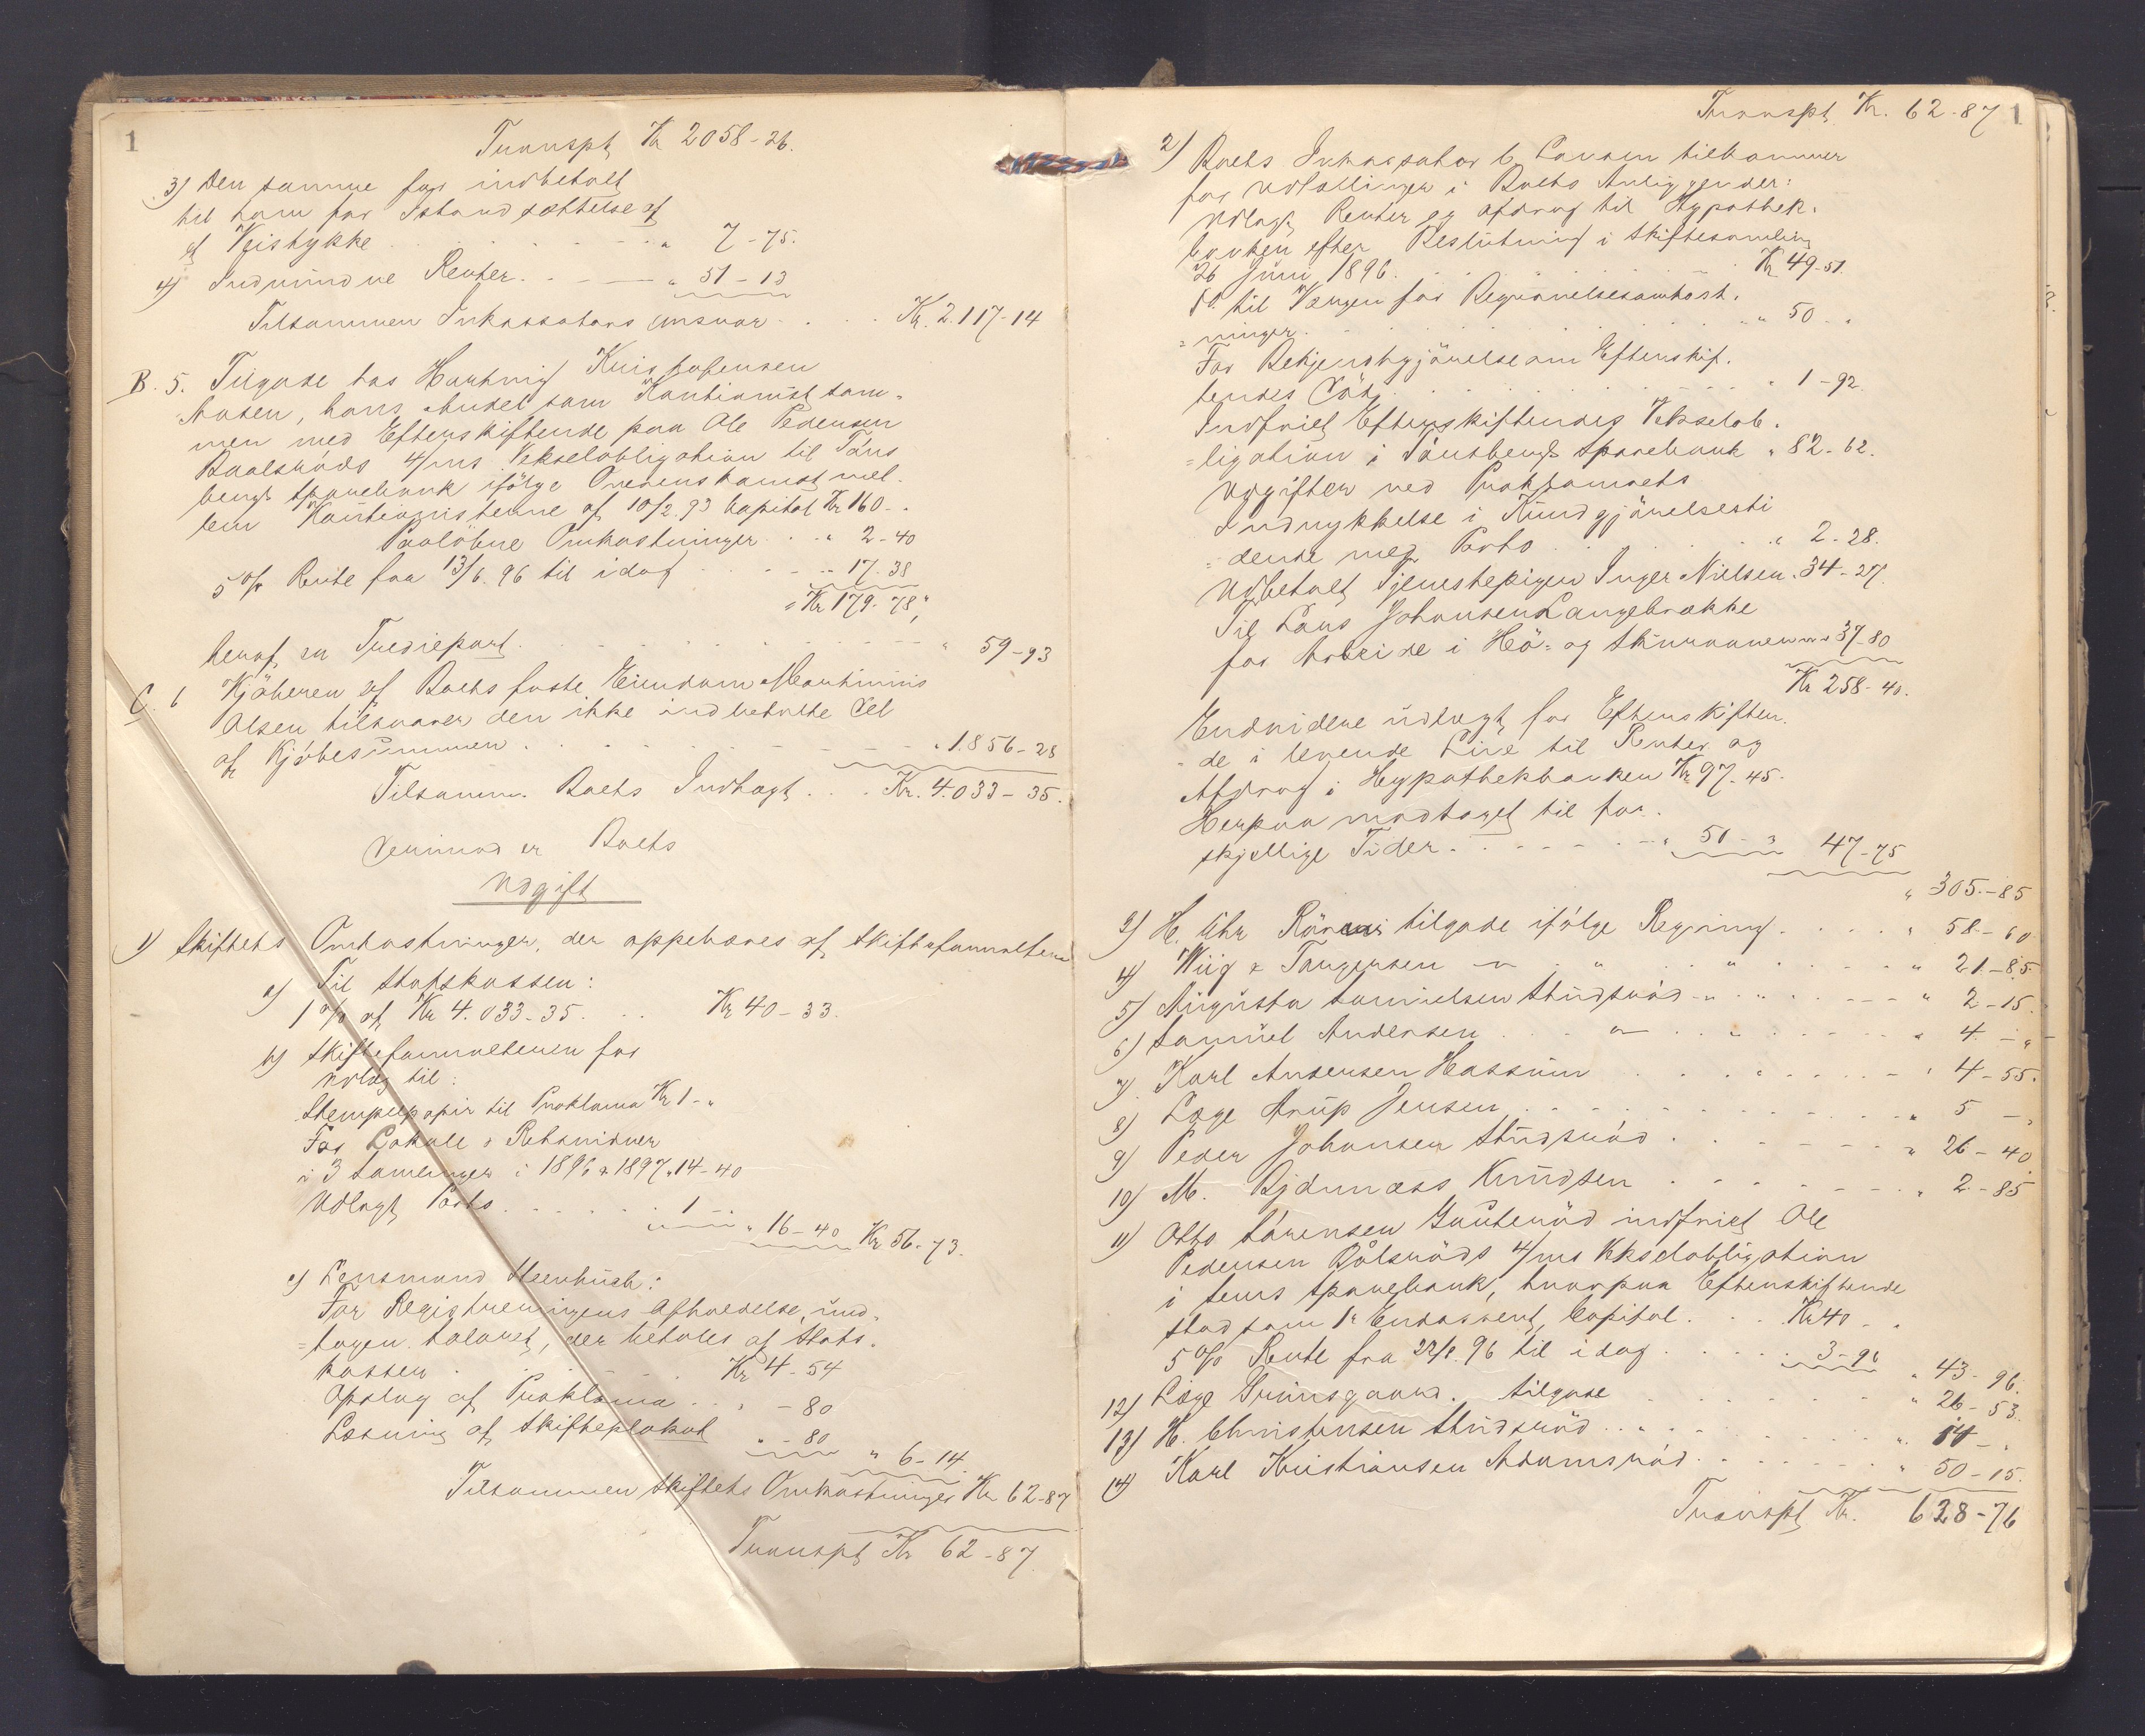 1
Transpt Kr 2058-26.
3) Den samme for indbetalt
til ham for Istandsættelse af
et Veistykke . . . " 7-75.
4) Indvundne Renter. . . " 51-13
Tilsammen Inkassators Ansvar . . . Kr. 2.117-14
B. 5. Tilgode hos Hartvig Kristofersen
Aasen, hans Andel som Kautionist sam-
men med Efterskiftende paa Ole Pedersen
Baalsröds 4/ms Vekselobligation til Töns
bergs Sparebank ifölge Overenskomst mel-
lem Kautionisterne af 10/2 93 Capital Kr 160 - "
Paaløbne Omkostninger . . " 2-40
5 % Rente fra 13/6. 96 til idag . . . " 17.38
Kr 179-78,
heraf en Trediepart . . . " 59-93
C. 6 Kjöberen af Boets faste Eiendom Martinius
Olsen tilsvarer den ikke indbetalte Del
af Kjöbesummen . . . " 1.856-28
Tilsamm. Boets Indtægt . . . Kr. 4.033-35.
Derimod er Boets
Udgift
1) Skiftets Omkostninger, der oppebæres af Skifteforvalteren
a) Til Statskassen:
1 % af Kr 4.033-35. . . Kr 40-33.
b) Skifteforvalteren for
Udlæg til:
Stempelpapir til Proklama Kr 1 - "
For Lokale & Retsvidner
i 3 Samlinger i 1896 & 1897 " 14-40
Udlagt Porto . . . 1 - "
" 16-40 Kr 56-73.
c) Lensmand Steenbuch:
For Registreringens Afholdelse, und-
tagen Salaret, der betales af Stats-
kassen . . . Kr 4-54
Opslag af Proklama . . " -80
Læsning af Skifteplakat " -80
" 6-14
Tilsammen Skiftets Omkostninger Kr 62-87
Transpt Kr 62-87
Transpt Kr. 62-87 1
2) Boets Inkassator C. Larsen tilkommer
for Udtællinger i Boets Anliggender:
Udlagt Renter og Afdrag til Hypothek-
banken efter Beslutning i Skiftesamling
26 Juni 1896. . . . Kr 49-51.
Do. til Vangen for Begravelsesomkost-
ninger . . . " 50 - "
For Bekjendtgjörelse om Efterskif-
tendes Död . . . " 1-92.
Indfriet Efterskiftendes Vekselob-
ligation i Tönsbergs Sparebank " 82-62.
Udgifter ved Proklamaets
Indrykkelse i Kundgjörelsesti
dende med Porto . . . " 2-28.
Udbetalt Tjenestepigen Inger Nielsen " 34-27.
Til Lars Johansen Langebrække
for Arbeide i Hö- og Skuraannen " 37-80
Kr 258-40.
Endvidere udlagt for Efterskiften-
de i levende Live til Renter og
Afdrag i Hypothekbanken Kr 97-45.
Herpaa modtaget til for-
skjellige Tider . . . " 50 - " 47-75
" 305-85
3) H. Chr Rören tilgode ifölge Regning . . . " 58-60
4) Wiig & Torgersen " " " " 21-85
5) Augusta Samuelsen Stidsröd " " 2-15.
6) Samuel Andersen . . . " 4 - "
7) Karl Andersen Hassum . . . " 4-55.
8) Læge Arup Jensen . . . " 5 - "
9) Peder Johansen Stidsröd . . . " 26-40
10) M. Bjørnæss Knudsen . . . " 2-85
11) Otto Sörensen Gauteröd indfriet Ole
Pedersen Bålsröds 4/ms Vekselobligation
i Sems Sparebank, hvorpaa Efterskiftende
stod som 1ste Endossent, Capital . . Kr 40 - "
5 % Rente fra 22/1. 96 til idag . . . 3-96 " 43-96.
12) Læge Grünsgaard. tilgode . . . " 26-53.
13) H. Christensen Stidsröd . . . " 14 - "
14) Karl Kristiansen Adamsröd . . . " 50-15.
Transpt Kr. 628-76